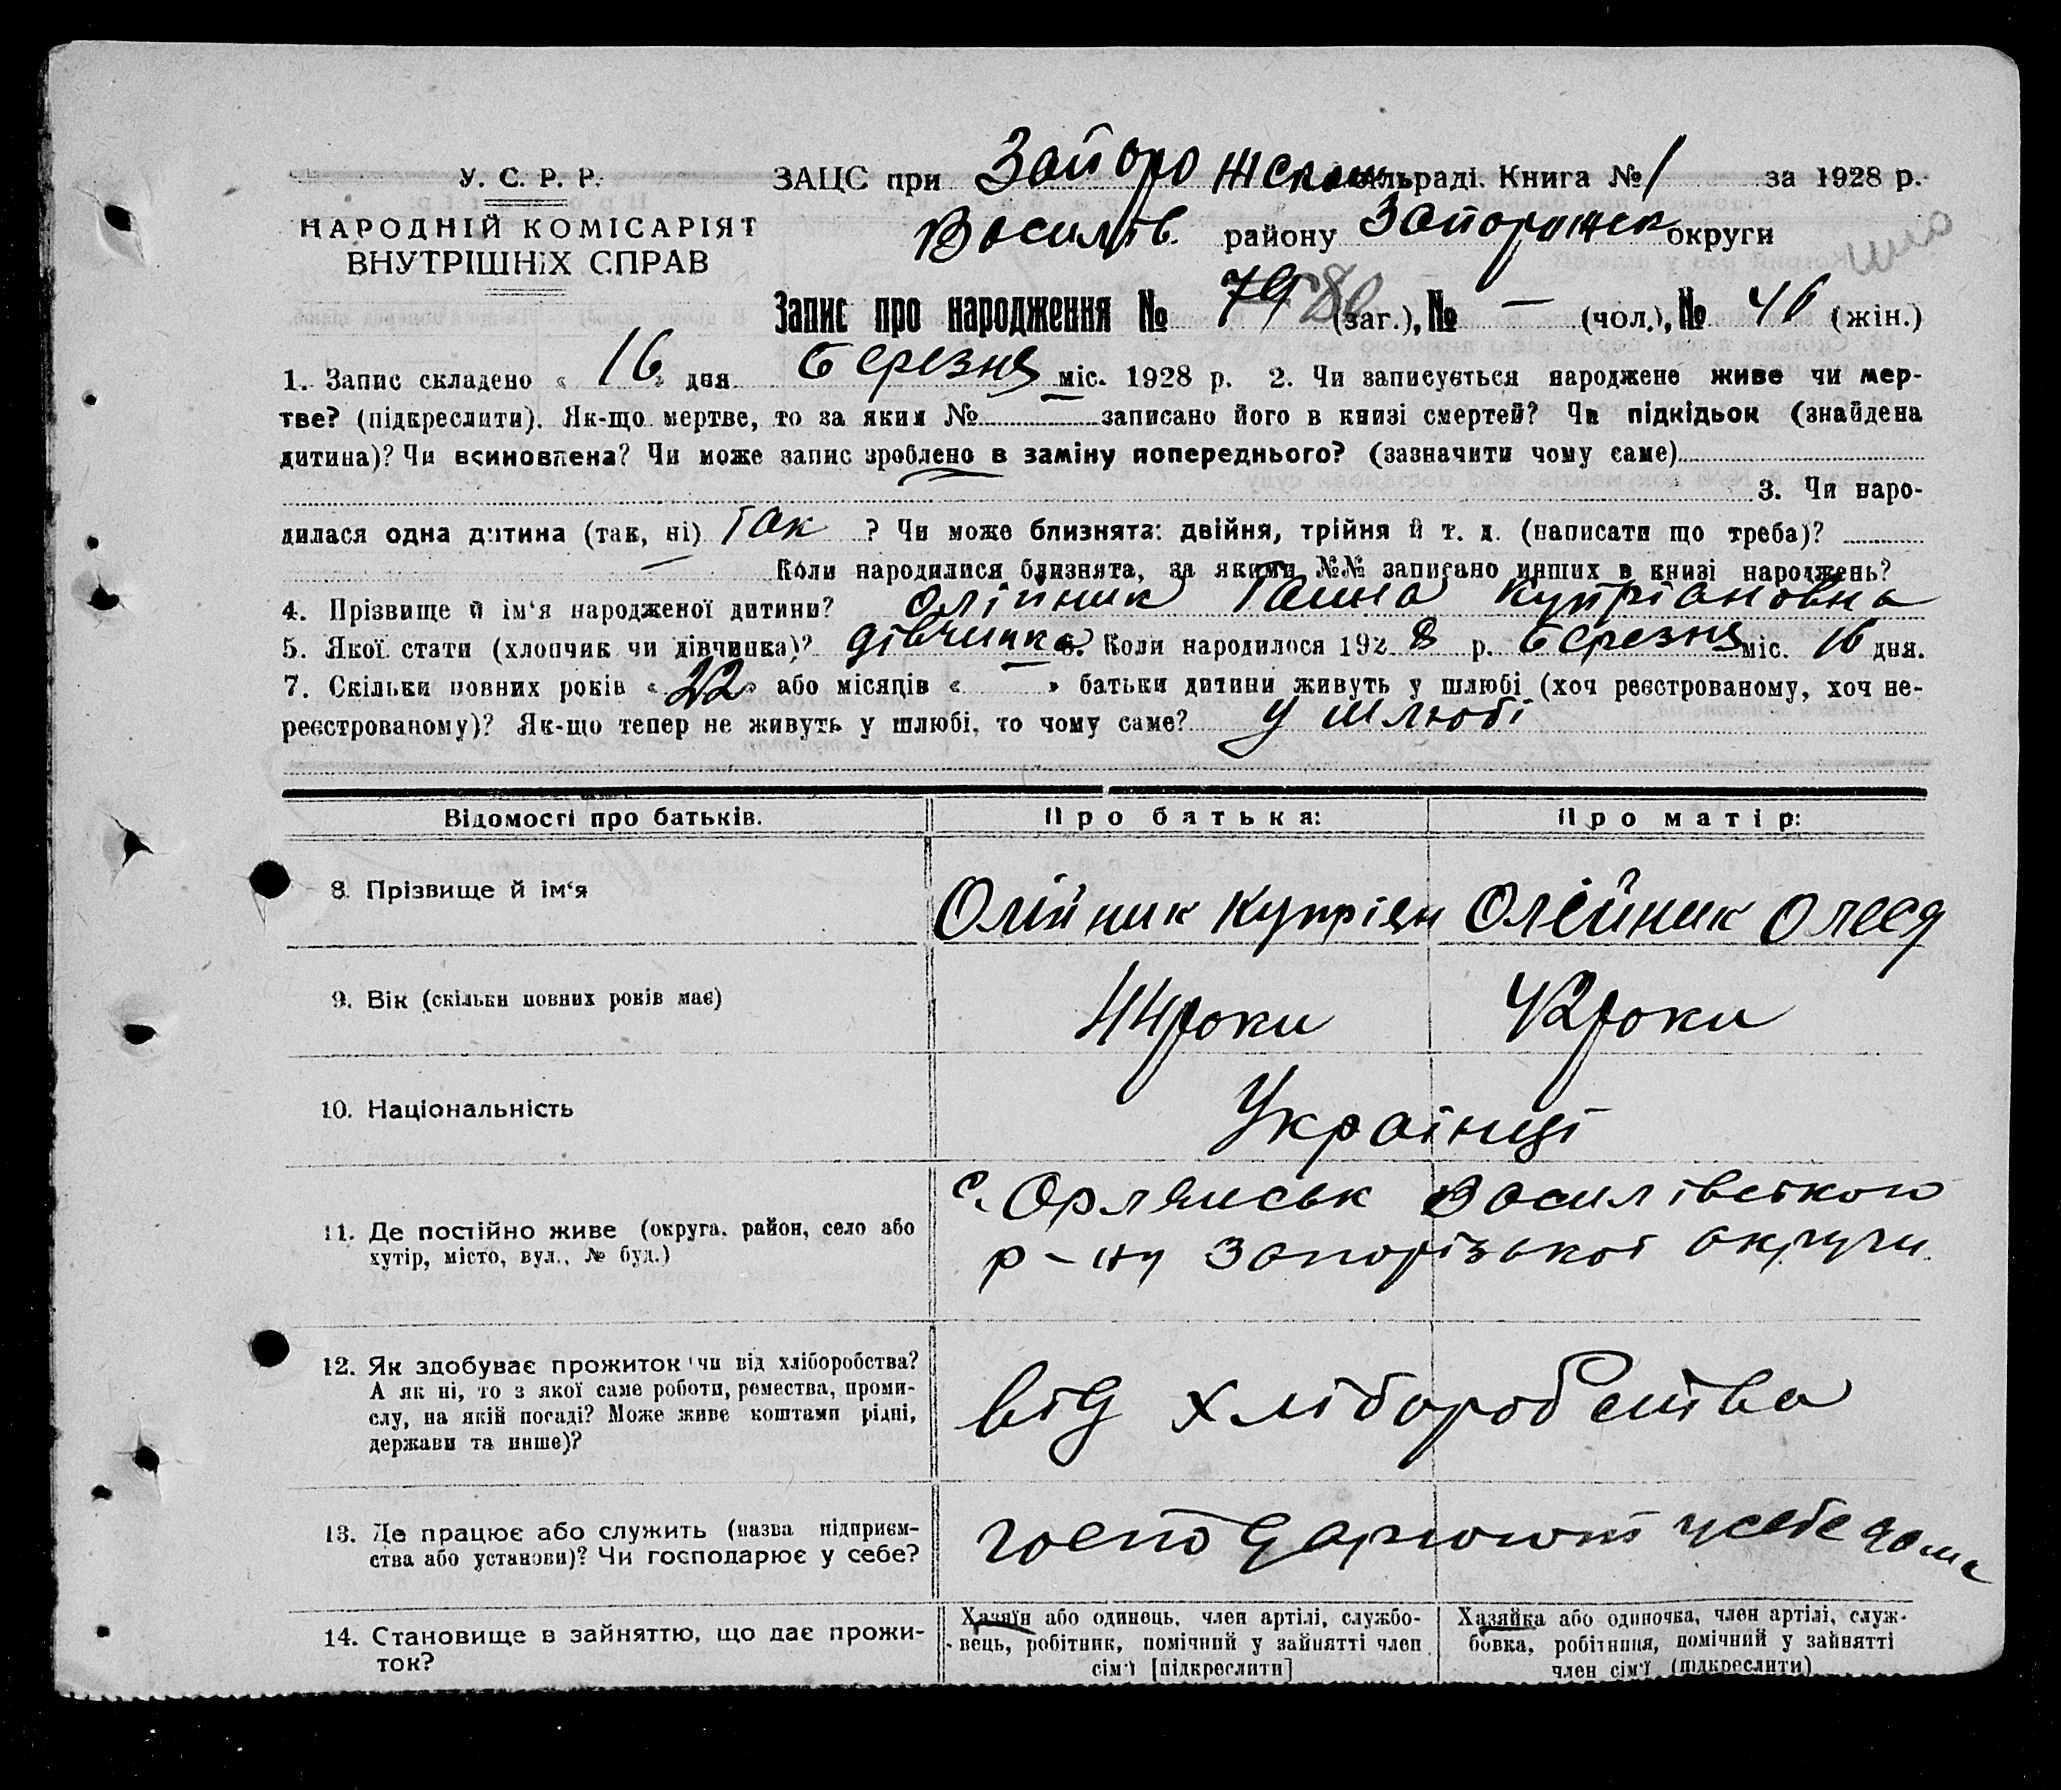 У. С. Р. Р.
НАРОДНІЙ КОМІСАРІЯТ
ВНУТРІШНІХ СПРАВ
ЗАЦС при сільраді. Книга № 1 за 1928 р.
Василів. району Запорожск округи
Запис про народження № 79 80 (заг.), № — (чол.), № 46 (жін.)
1. Запис складено « 16 » дня березня міс. 1928 р. 2. Чи записується народжене живе чи мер-
тве? (підкреслити). Як-що мертве, то за яким № — записано його в книзі смертей? Чи підкідьок (знайдена
дитина)? Чи всиновлена? Чи може запис зроблено в заміну попереднього? (зазначити чому саме)
3. Чи наро-
дилася одна дитина (так, ні) так ? Чи може близнята: двійня, трійня й т. д. (написати що треба)?
Коли народилися близнята, за якими №№ записано инших в книзі народжень?
4. Прізвище й ім'я народженої дитини? Олійник Ганна Купріановна
5. Якої стати (хлопчик чи дівчинка)? дівчинка 6. Коли народилося 192 8 р. березня міс. 16 дня.
7. Скільки повних років « 22 » або місяців « — » батьки дитини живуть у шлюбі (хоч реєстрованому, хоч не-
реєстрованому)? Як-що тепер не живуть у шлюбі, то чому саме? у шлюбі
Відомості про батьків. Про батька: Про матір:
8. Прізвище й ім'я Олійник Купріян Олійник Олеся
9. Вік (скільки повних років має) 44 роки 42 роки
10. Національність Українці
11. Де постійно живе (округа, район, село або
хутір, місто, вул., № буд.)
с. Орлянськ Василівського
р-ну Запорізької округи
12. Як здобуває прожиток чи від хліборобства?
А як ні, то з якої саме роботи, ремества, проми-
слу, на якій посаді? Може живе коштами рідні,
держави та инше)?
від хліборобства
13. Де працює або служить (назва підприєм-
ства або установи)? Чи господарює у себе?
господарюють у себе дома
14. Становище в зайняттю, що дає прожи-
ток?
Хазяїн або одинець, член артілі, службо-
вець, робітник, помічний у зайнятті член
сім'ї [підкреслити]
Хазяйка або одиночка, член артілі, служ-
бовка, робітниця, помічний у зайнятті
член сім'ї (підкреслити)